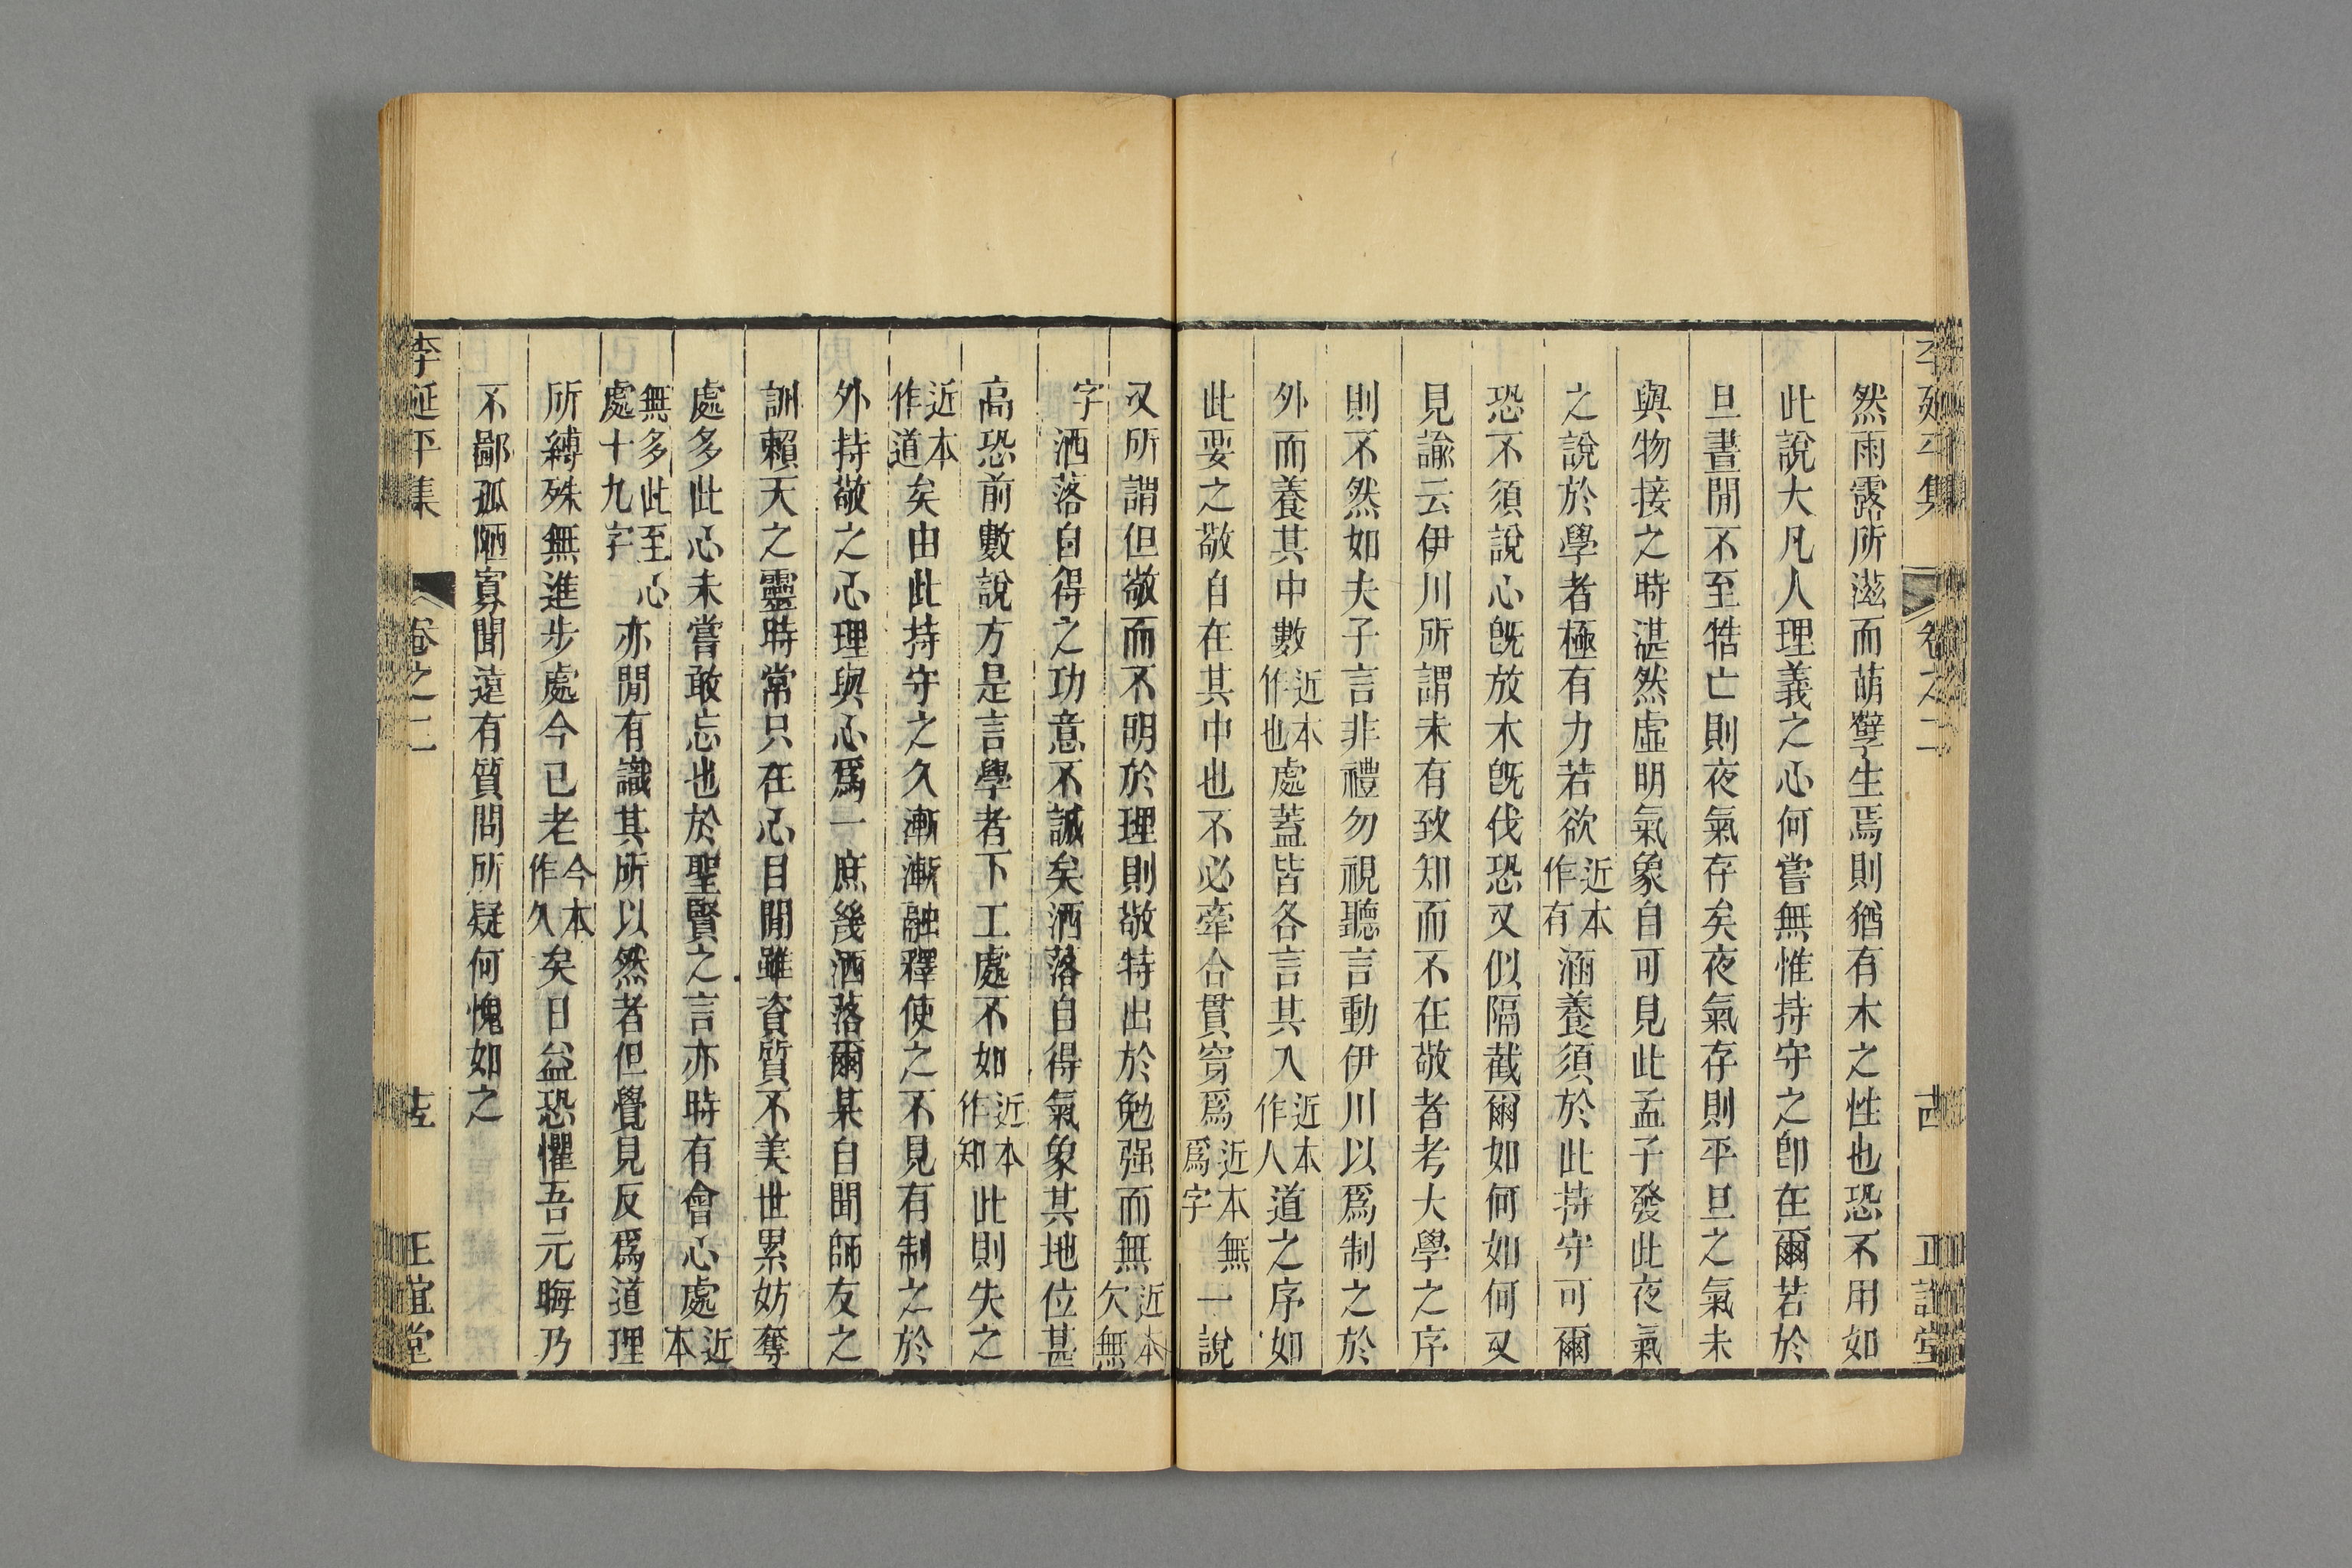 李延平集 卷之二 古 正誼堂
然雨露所滋而萌蘖生焉則猶有木之性也恐不用如
此說大凡人理義之心何嘗無惟持守之卽在爾若於
旦晝閒不至牿亡則夜氣存矣夜氣存則平旦之氣未
與物接之時湛然虛明氣象自可見此孟子發此夜氣
之說於學者極有力若欲近本作有涵養須於此持守可爾
恐不須說心旣放木旣伐恐又似隔截爾如何如何又
見諭云伊川所謂未有致知而不在敬者考大學之序
則不然如夫子言非禮勿視聽言動伊川以爲制之於
外而養其中數近本作也處蓋皆各言其入近本作人道之序如
此要之敬自在其中也不必牽合貫穿爲近本無爲字一說
又所謂但敬而不明於理則敬特出於勉强而無近本欠無
字洒落自得之功意不誠矣洒落自得氣象其地位甚
高恐前數說方是言學者下工處不如近本作知此則失之
近本作道矣由此持守之久漸漸融釋使之不見有制之於
外持敬之心理與心爲一庶幾洒落爾某自聞師友之
訓賴天之靈時常只在心目閒雖資質不美世累妨奪
處多此心未嘗敢忘也於聖賢之言亦時有會心處近本
無多此至心處十九字亦閒有識其所以然者但覺見反爲道理
所縛殊無進步處今已老今本作久矣日益恐懼吾元晦乃
不鄙孤陋寡聞遠有質問所疑何愧如之
李延平集 卷之二 𡊮 正誼堂